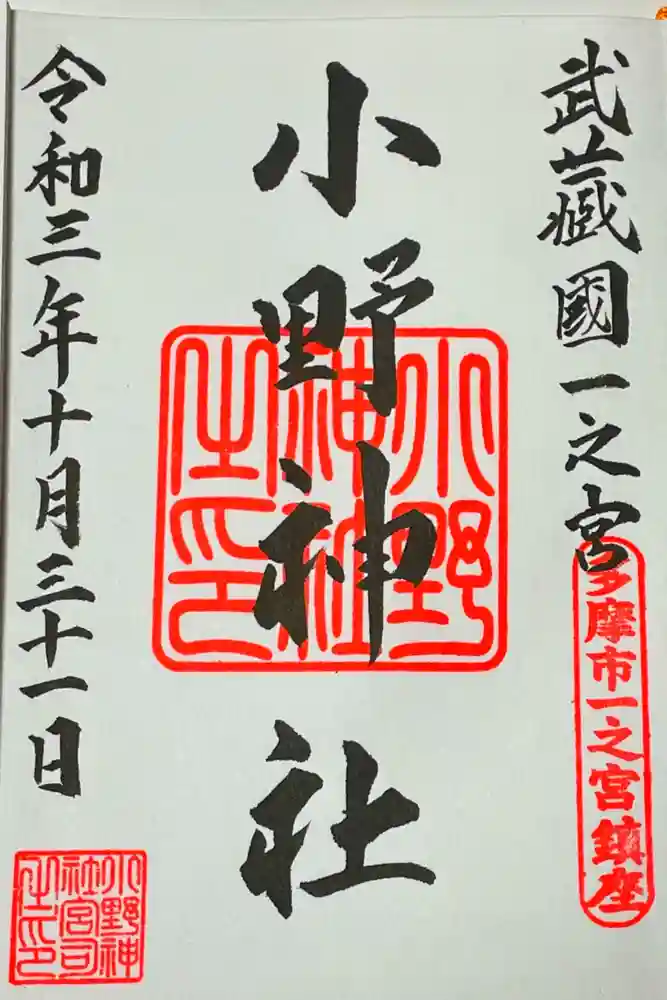 武蔵國一之宮
多摩市一之宮鎮座
小野神社
小野神社之印
令和三年十月三十一日
小野神社宮司之印